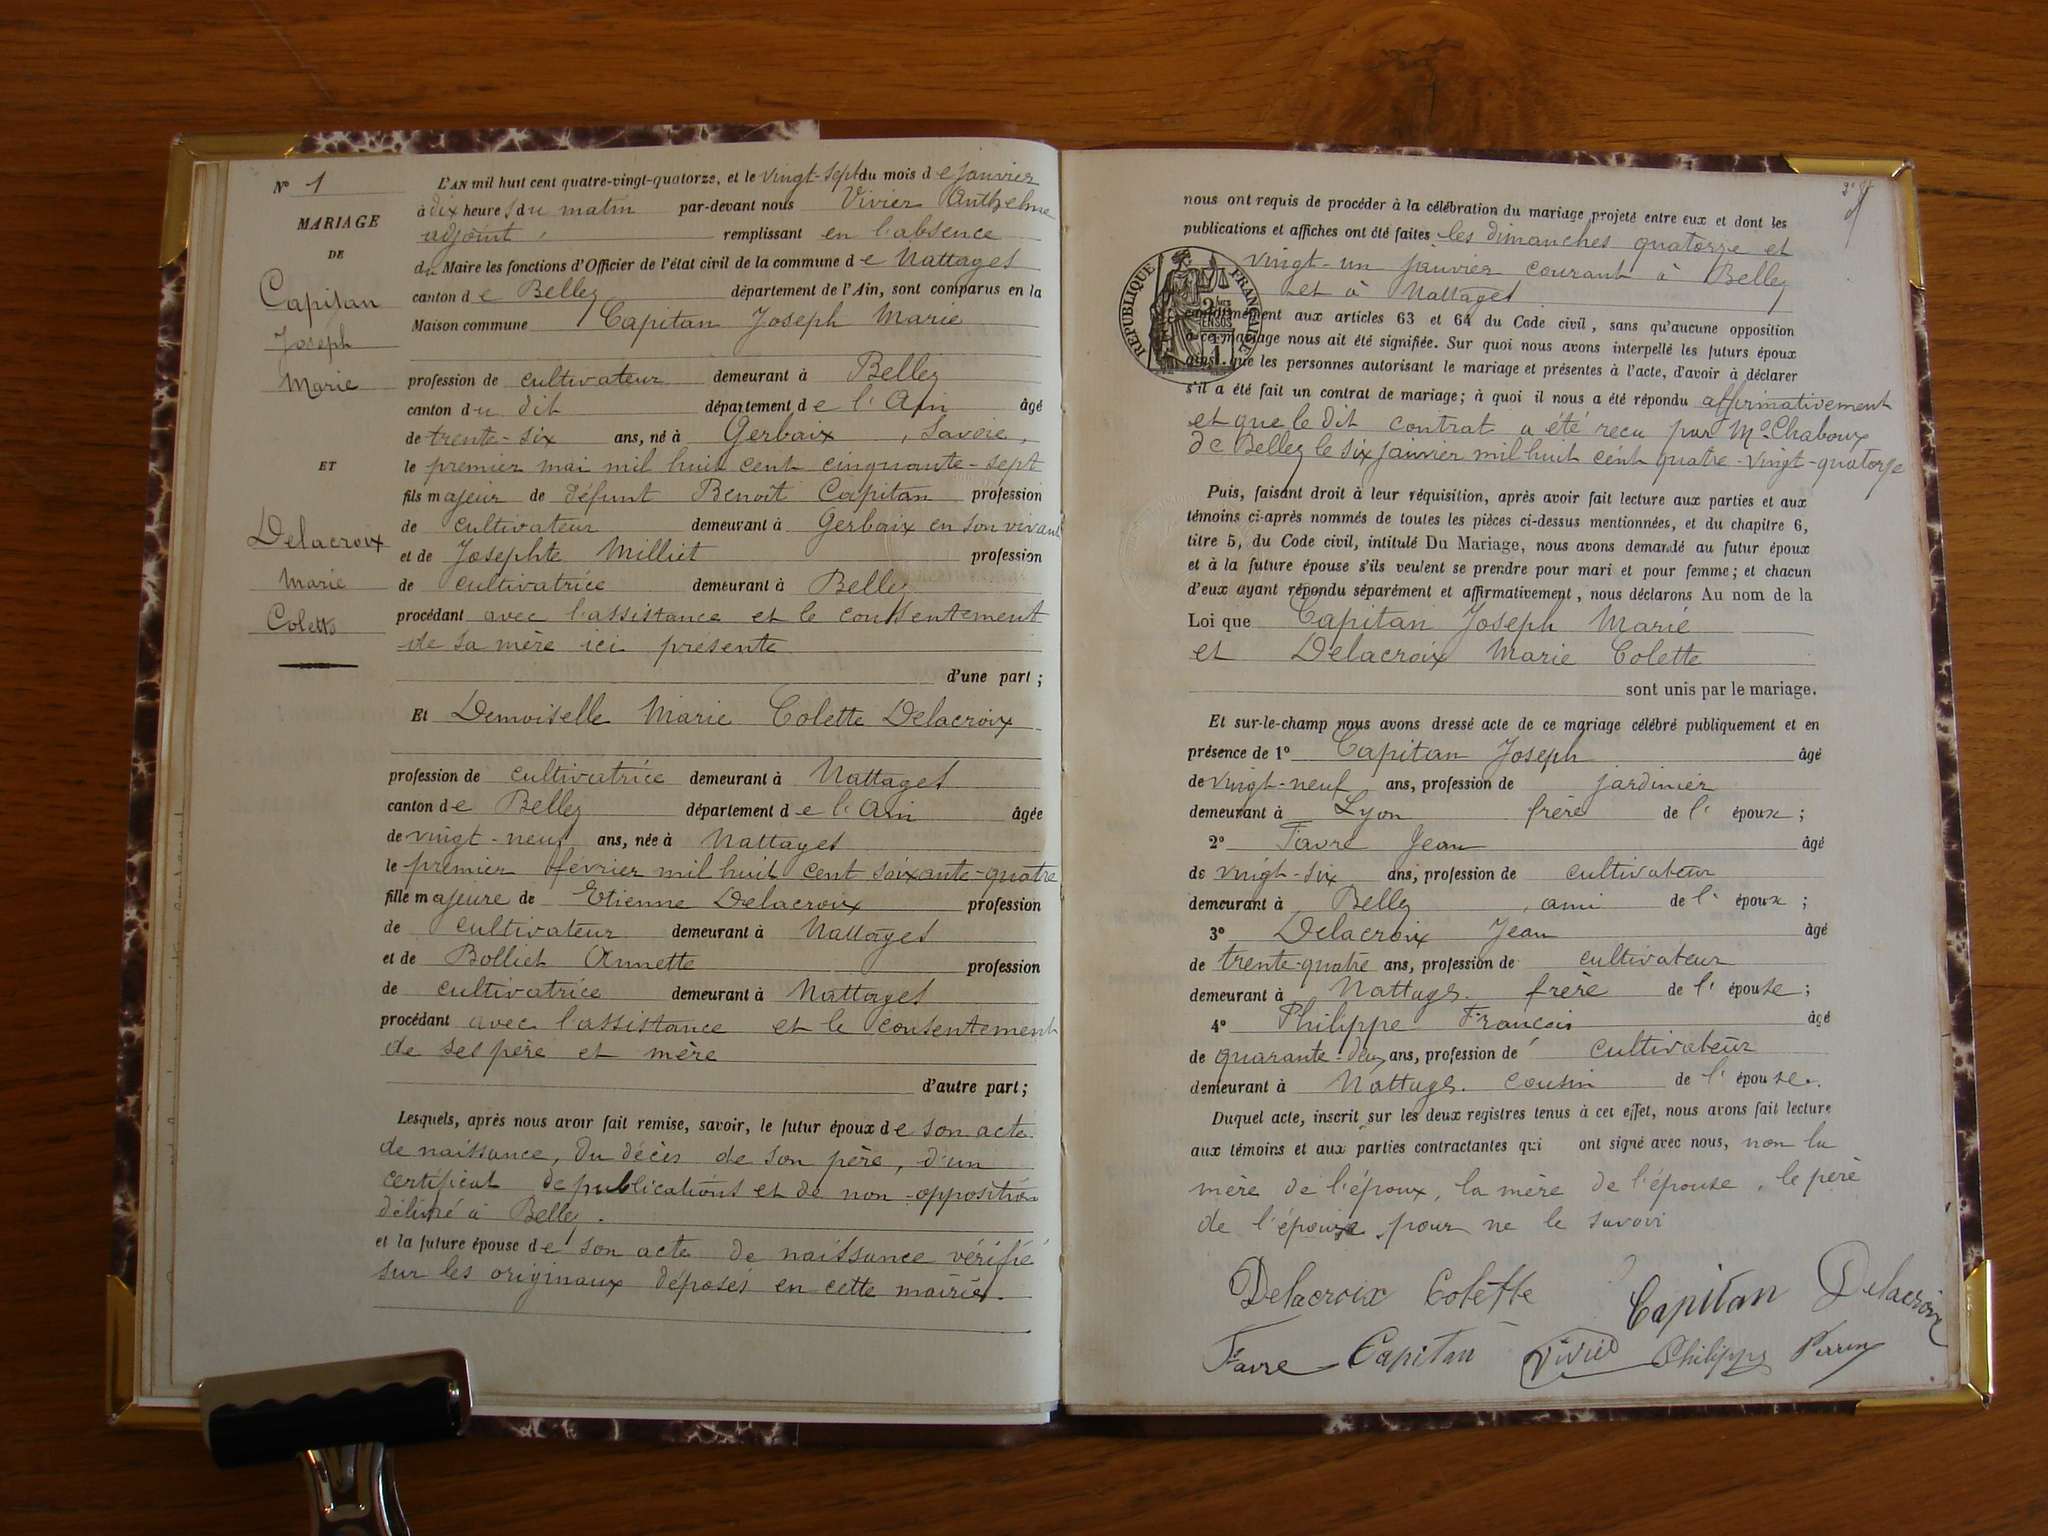 N° 1
MARIAGE
DE
Capitan
Joseph
Marie
ET
Delacroix
Marie
Colette
L'AN mil huit cent quatre-vingt-quatorze, et le vingt-sept du mois de janvier
à dix heures du matin par-devant nous Vivier Anthelme
adjoint remplissant en l'absence
du Maire les fonctions d'Officier de l'état civil de la commune de Nattages
canton de Belley département de l'Ain, sont comparus en la
Maison commune Capitan Joseph Marie
profession de cultivateur demeurant à Belley
canton du dit département de l'Ain âgé
de trente-six ans, né à Gerbaix, Savoie,
le premier mai mil huit cent cinquante-sept
fils majeur de défunt Benoît Capitan profession
de cultivateur demeurant à Gerbaix en son vivant
et de Josephte Milliet profession
de cultivatrice demeurant à Belley
procédant avec l'assistance et le consentement
de sa mère ici présente
d'une part ;
Et Demoiselle Marie Colette Delacroix
profession de cultivatrice demeurant à Nattages
canton de Belley département de l'Ain âgée
de vingt-neuf ans, née à Nattages
le premier février mil huit cent soixante-quatre
fille majeure de Etienne Delacroix profession
de cultivateur demeurant à Nattages
et de Bolliet Annette profession
de cultivatrice demeurant à Nattages
procédant avec l'assistance et le consentement
de ses père et mère
d'autre part ;
Lesquels, après nous avoir fait remise, savoir, le futur époux de son acte
de naissance, du décès de son père, d'un
certificat de publications et de non-opposition
délivré à Belley.
et la future épouse de son acte de naissance vérifié
sur les originaux déposés en cette mairie.
nous ont requis de procéder à la célébration du mariage projeté entre eux et dont les
publications et affiches ont été faites les dimanches quatorze et
vingt-un janvier courant à Belley
et à Nattages
RÉPUBLIQUE FRANÇAISE
conformément aux articles 63 et 64 du Code civil, sans qu'aucune opposition
à ce mariage nous ait été signifiée. Sur quoi nous avons interpellé les futurs époux
ainsi que les personnes autorisant le mariage et présentes à l'acte, d'avoir à déclarer
s'il a été fait un contrat de mariage ; à quoi il nous a été répondu affirmativement
et que le dit contrat a été reçu par Me Chaboux
de Belley le six janvier mil huit cent quatre-vingt-quatorze
Puis, faisant droit à leur réquisition, après avoir fait lecture aux parties et aux
témoins ci-après nommés de toutes les pièces ci-dessus mentionnées, et du chapitre 6,
titre 5, du Code civil, intitulé Du Mariage, nous avons demandé au futur époux
et à la future épouse s'ils veulent se prendre pour mari et pour femme ; et chacun
d'eux ayant répondu séparément et affirmativement, nous déclarons Au nom de la
Loi que Capitan Joseph Marie
et Delacroix Marie Colette
sont unis par le mariage.
Et sur-le-champ nous avons dressé acte de ce mariage célébré publiquement et en
présence de 1° Capitan Joseph âgé
de vingt-neuf ans, profession de jardinier
demeurant à Lyon frère de l'époux ;
2° Favre Jean âgé
de vingt-six ans, profession de cultivateur
demeurant à Belley, ami de l'époux ;
3° Delacroix Jean âgé
de trente-quatre ans, profession de cultivateur
demeurant à Nattages. frère de l'épouse ;
4° Philippe François âgé
de quarante-deux ans, profession de cultivateur
demeurant à Nattages. cousin de l'épouse.
Duquel acte, inscrit sur les deux registres tenus à cet effet, nous avons fait lecture
aux témoins et aux parties contractantes qui ont signé avec nous, non la
mère de l'époux, la mère de l'épouse, le père
de l'épouse, pour ne le savoir
Delacroix Colette Capitan Delacroix
Favre Capitan Vivier Philippe Perrin